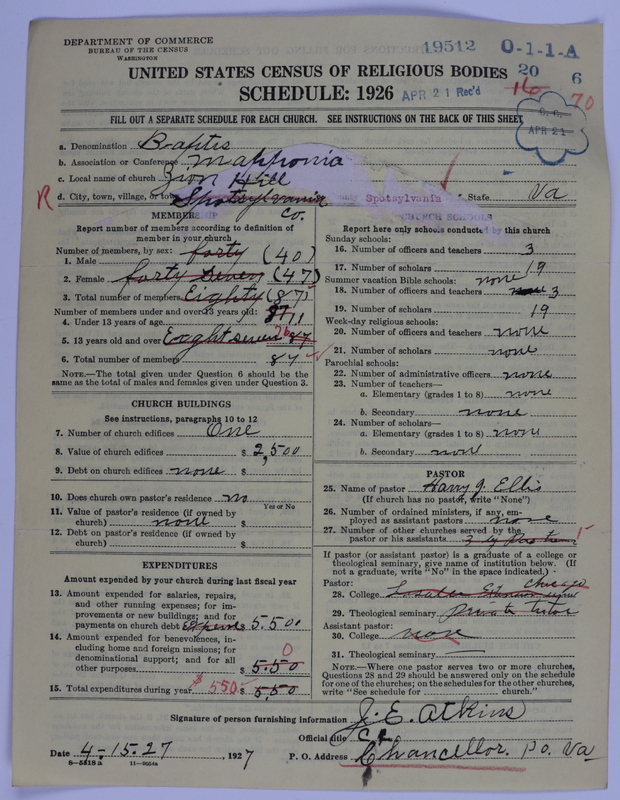 DEPARTMENT OF COMMERCE
BUREAU OF THE CENSUS
WASHINGTON
19512 O-1-1-A
UNITED STATES CENSUS OF RELIGIOUS BODIES 20 6
SCHEDULE: 1926 APR 21 Rec'd 16 70
FILL OUT A SEPARATE SCHEDULE FOR EACH CHURCH. SEE INSTRUCTIONS ON THE BACK OF THIS SHEET
APR 21
a. Denomination Baptis
b. Association or Conference Mapponia
c. Local name of church Zion Hill
R d. City, town, village, or Spotsylvania Co. Spotsylvania State Va
MEMBERSHIP
Report number of members according to definition of member in your church
Number of members, by sex:
1. Male forty (40)
2. Female forty seven (47)
3. Total number of members Eighty (87)
Number of members under and over 13 years old:
4. Under 13 years of age 11
5. 13 years old and over Eaght seven 76 87
6. Total number of members 87
NOTE.—The total given under Question 6 should be the
same as the total of males and females given under Question 3.
CHURCH BUILDINGS
See instructions, paragraphs 10 to 12
7. Number of church edifices One
8. Value of church edifices $ 2,500
9. Debt on church edifices none $
10. Does church own pastor's residence no
Yes or No
11. Value of pastor's residence (if owned by
church) none $
12. Debt on pastor's residence (if owned by
church) $
EXPENDITURES
Amount expended by your church during last fiscal year
13. Amount expended for salaries, repairs,
and other running expenses; for im-
provements or new buildings; and for
payments on church debt $ 5.500
14. Amount expended for benevolences, in-
cluding home and foreign missions; for
denominational support; and for all
other purposes $ 5.50 0
15. Total expenditures during year $ 550 $ 5.50
CHURCH SCHOOLS
Report here only schools conducted by this church
Sunday schools:
16. Number of officers and teachers 3
17. Number of scholars 19
Summer vacation Bible schools: none
18. Number of officers and teachers none 3
19. Number of scholars 19
Week-day religious schools:
20. Number of officers and teachers none
21. Number of scholars none
Parochial schools:
22. Number of administrative officers none
23. Number of teachers—
a. Elementary (grades 1 to 8) none
b. Secondary none
24. Number of scholars—
a. Elementary (grades 1 to 8) none
b. Secondary none
PASTOR
25. Name of pastor Harry J. Ellis
(If church has no pastor, write "None")
26. Number of ordained ministers, if any, em-
ployed as assistant pastors none
27. Number of other churches served by the
pastor or his assistants 3
If pastor (or assistant pastor) is a graduate of a college or
theological seminary, give name of institution below. (If
not a graduate, write "No" in the space indicated.)
Pastor: Chicago
28. College Lasalle Extension
29. Theological seminary Private tutor
Assistant pastor:
30. College none
31. Theological seminary
NOTE.—Where one pastor serves two or more churches,
Questions 28 and 29 should be answered only on the schedule
for one of the churches; on the schedules for the other churches,
write "See schedule for church."
Signature of person furnishing information J. E. Atkins
Official title C.C.
Date 4-15.27, 1927 P. O. Address Chancellor. Po. Va
8-5518 a 11-9554a